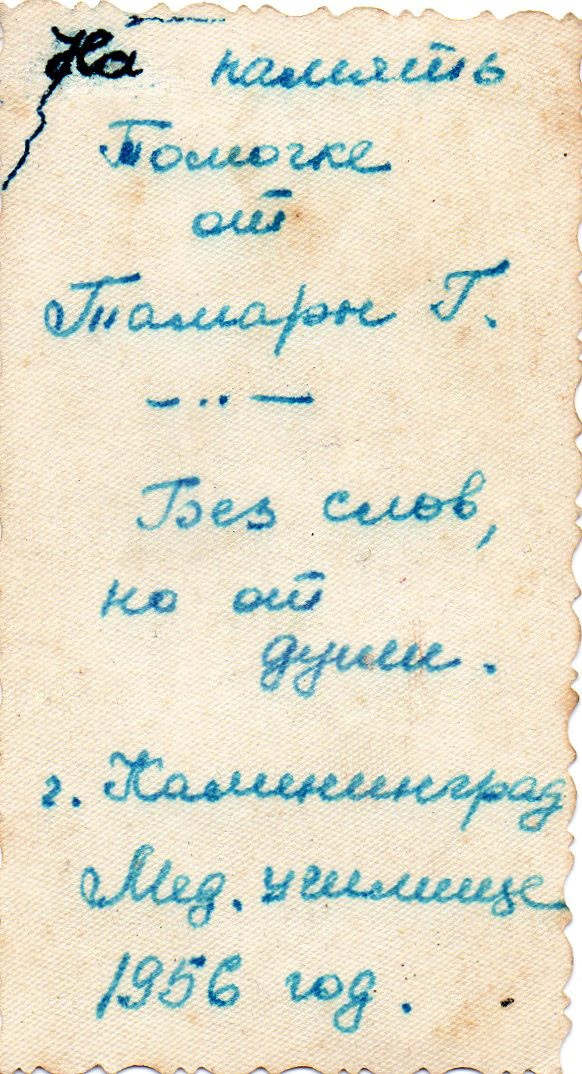 На память
Томочке
от
Тамары Г.
— .. —
Без слов,
но от
души.
г. Калининград
Мед. училище
1956 год.